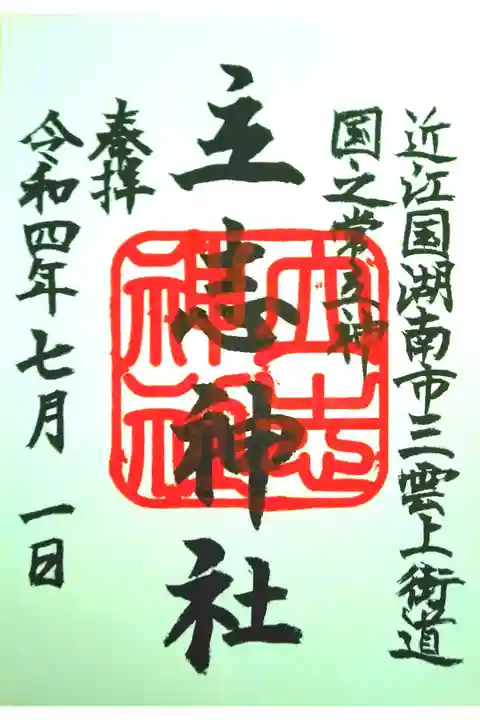 近江国湖南市三雲上街道
国之常立神
立志神社
立志神社
奉拝
令和四年七月 一日